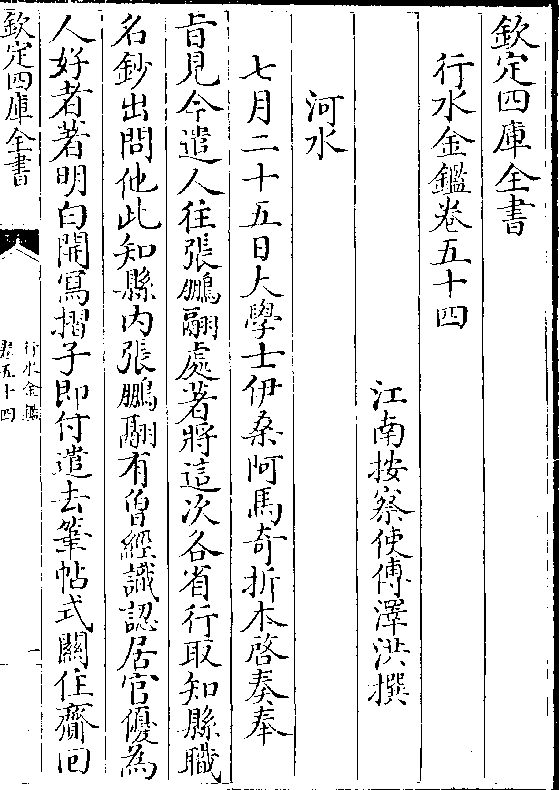 欽定四庫全書
行水金鑑卷五十四
江南按察使傅澤洪撰
河水
七月二十五日大學士伊桑阿馬奇折本啓奏奉
旨見今遣人往張鵬翮處著將這次各省行取知縣職
名鈔出問他此知縣內張鵬翮有曾經識認居官優為
人好者著明白開寫摺子即付遣去筆帖式關住齎回
欽定四庫全書
行水金鑑
卷五十四
一